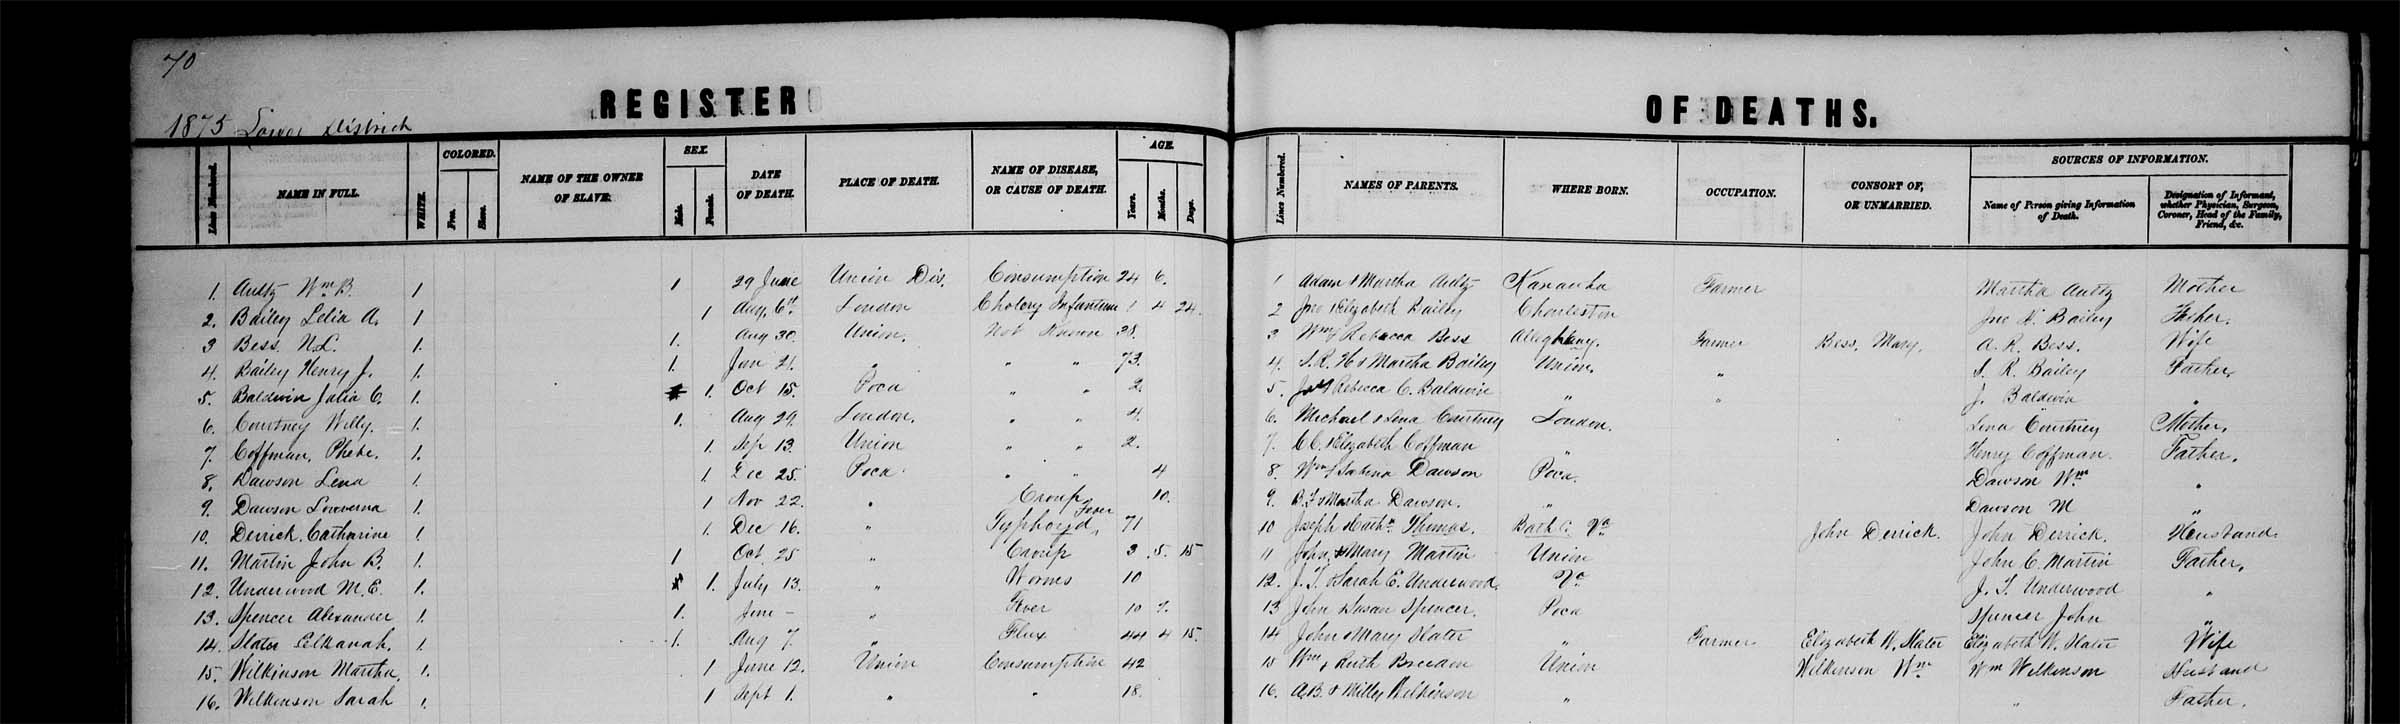 70
REGISTER OF DEATHS.
1875 Lower District
Lines Numbered. NAME IN FULL. WHITE. COLORED. Free. Slave. NAME OF THE OWNER OF SLAVE. SEX. Male. Female. DATE OF DEATH. PLACE OF DEATH. NAME OF DISEASE, OR CAUSE OF DEATH. AGE. Years. Months. Days.
Lines Numbered. NAMES OF PARENTS. WHERE BORN. OCCUPATION. CONSORT OF, OR UNMARRIED. SOURCES OF INFORMATION. Name of Person giving Information of Death. Designation of Informant, whether Physician, Surgeon, Coroner, Head of the Family, Friend, &c.
1. Aultz Wm B. 1 1 29 June Union Dis. Consumption 24 6. 1 Adam & Martha Aultz Kanawha Farmer Martha Aultz Mother
2. Bailey Lelia A. 1 1 Aug. 6th London Cholery Infantum 1 4 24. 2 Jno & Elizabeth Bailey Charleston Jno H. Bailey Father.
3 Bess. N.L. 1. 1. Aug 30. Union. Not Known 28. 3 Wm & Rebecca Bess Alleghany. Farmer Bess, Mary. A. R. Bess. Wife
4. Bailey Henry J. 1. 1. Jan 21. " " " 73. 4. S. R. H & Martha Bailey Union. " S. R. Bailey Father.
5. Baldwin Julia C. 1. 1. Oct 15. Poca " " 2. 5. & Rebecca C. Baldwin " " J. Baldwin "
6. Courtney Willy. 1. 1. Aug 29. London. " " 4. 6. Michael & Lena Courtney London. Lena Courtney Mother.
7. Coffman, Phebe. 1. 1. Sep 13. Union " " 2. 7. C. C. & Elizabeth Coffman " Henry Coffman. Father.
8. Dawson Lena 1. 1. Dec 25. Poca " " 4 8. Wm & Sabina Dawson Poca. Dawson Wm "
9. Dawson Louverna 1. 1 Nov 22. " Croup 10. 9. B. F & Martha Dawson. " Dawson M "
10. Derrick. Catharine 1. 1. Dec 16. " Typhoyd Fever 71 10 Joseph & Cathn Thomas. Bath C. Va John Derrick. John Derrick. Housband.
11. Martin John B. 1. 1 Oct. 25 " Croup 3 5. 15 11 John & Mary Martin Union John C. Martin Father.
12. Underwood M. E. 1. 1. July 13. " Worms 10 12. J. T. & Sarah E. Underwood. Va J. T. Underwood "
13. Spencer Alexander 1. 1. June - " Fever 10 7. 13 John & Susan Spencer. Poca Spencer John "
14. Slater Elkanah. 1. 1. Aug 7. " Flux 44 4 15. 14 John & Mary Slater " Farmer Elizabeth W. Slater Elizabeth W. Slater Wife
15. Wilkinson Martha. 1. 1 June 12. Union Consumption 42 15 Wm & Ruth Breedon Union Wilkinson Wm Wm Wilkinson Husband
16. Wilkinson Sarah 1. 1 Sept 1. " " 18. 16. A. B. & Milly Wilkinson " " Father.